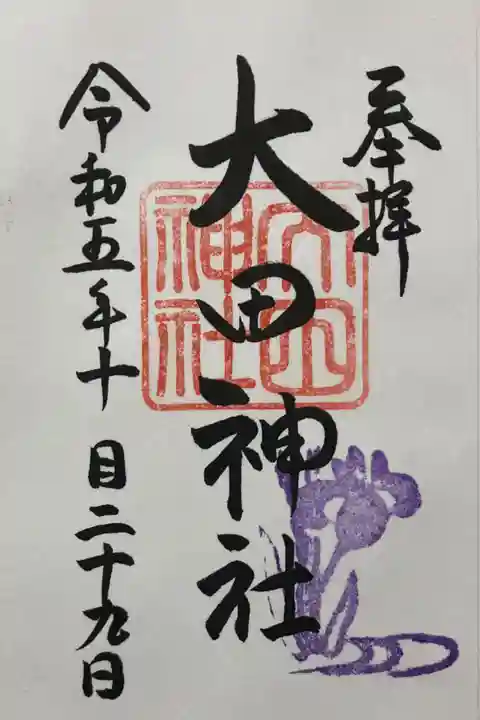 奉拝
大田神社
大田神社
令和五年十月二十九日